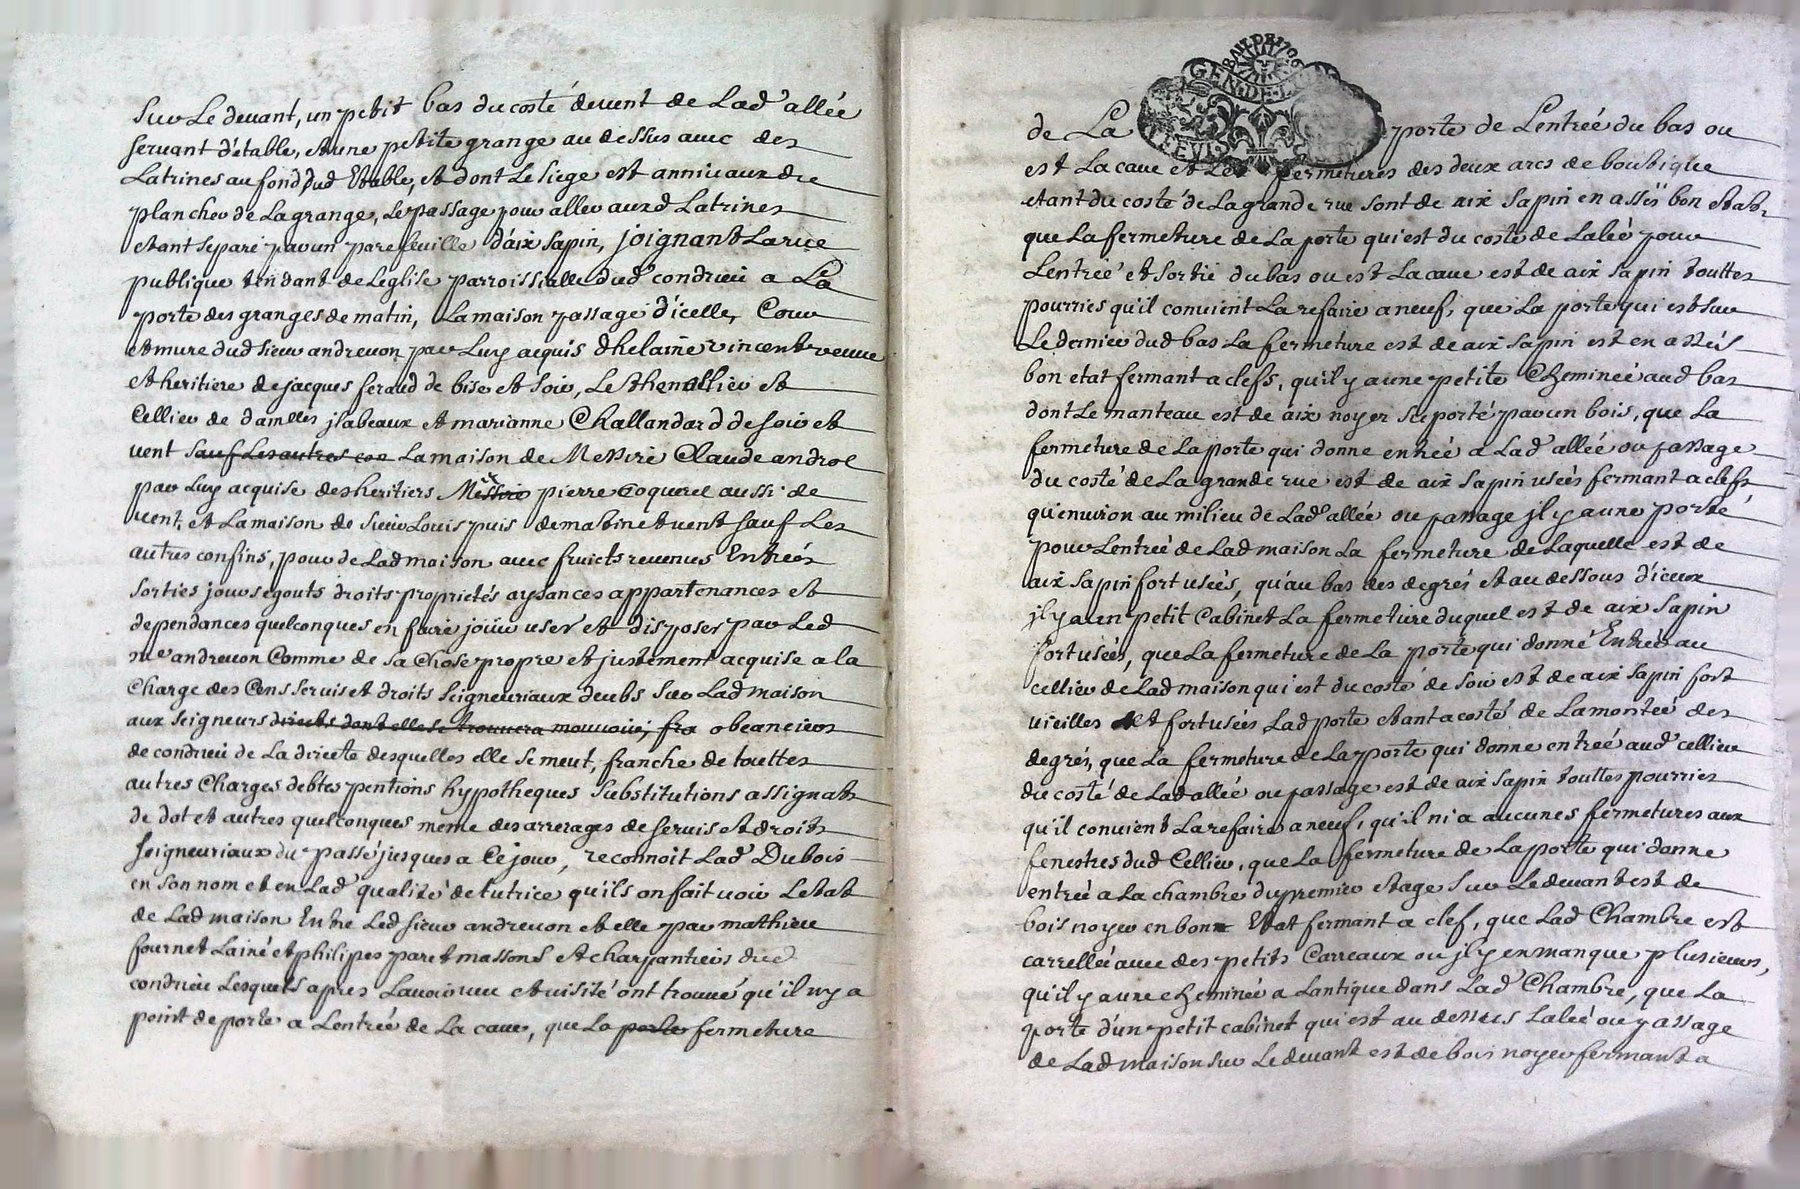 Sur Le devant, un petit bas du costé de vent de Lad' allée
servant d'étable, et une petite grange au dessus avec des
Latrines au fond dud Etable, et dont Le siege est au niveaux du
plancher de La grange, Le passage pour aller auxd Latrines
etant separé par un parefeuille d'aix sapin, joignant La rue
publique tendant de Leglise parroissialle dud' condrieu a La
porte des granges de matin, La maison passage d'icelle, Cour
et mure dud sieur andrevon par Luy acquis dhelaine vincent veuve
et heritiere de jacques feraud de bise et soir, Le Athenallier et
Cellier de damlles jsabeaux et marianne Challandard de soir et
vent sauf Les autres con La maison de Messire Claude androl
par Luy acquise des heritiers Messire pierre Coquerel aussi de
vent, et La maison de sieur Louis puis de matin et vent sauf Les
autres confins, pour de Lad maison avec fruicts revenus Entrées
sorties jours egouts droits proprietés aysances appartenances et
dependances quelconques en faire joüir user et disposer par Led
me andrevon Comme de sa Chose propre et justement acquise a la
Charge des Cens servis et droits seigneuriaux deubs sur Lad maison
aux seigneurs directs dont elle se trouvera mouvoir, fra obeanciers
de condrieu de La directe desquelles elle se meut, franche de touttes
autres Charges debtes pentions hypotheques substitutions assignats
de dot et autres quelconques meme des arrerages de servis et droits
seigneuriaux du passé jusques a Ce jour, reconnoit Lad' Dubois
en son nom et en Lad' qualité de tutrice qu'ils on fait voir L'etat
de Lad maison Entre Led sieur andrevon et elle par mathieu
fournet Lainé et philipes paret massons et charpantiers dud
condrieu Lesquels apres Lavoir vue et visité ont trouvé qu'il ny a
point de porte a Lentrée de La cave, que La porte fermeture
de La porte de Lentrée du bas ou
est La cave et Les fermetures des deux arcs de boutique
etant du costé de La grande rue sont de aix sapin en assés bon etat,
que La fermeture de La porte qui est du costé de Lalée pour
Lentreé et sortie du bas ou est La cave est de aix sapin touttes
pourries qu'il convient La refaire a neuf, que La porte qui est sur
Le dernier dud bas La fermeture est de aix sapin est en assés
bon etat fermant a clefs, qu'il y a une petite Cheminée aud bas
dont Le manteau est de aix noyer suporté par un bois, que La
fermeture de La porte qui donne entrée a Lad' allée ou passage
du costé de La grande rue est de aix sapin usées fermant a clefs
qu'environ au milieu de Lad' allée ou passage jl y a une porte
pour Lentreé de Lad maison La fermeture de Laquelle est de
aix sapin fort useés, qu'au bas des degrés et au dessous d'iceux
jl y a un petit Cabinet La fermeture duquel est de aix sapin
fort useés, que La fermeture de La porte qui donne Entrée au
cellier de Lad maison qui est du costé de soir est de aix sapin fort
vieilles et fort usées Lad porte etant a costé de La monteé des
degrés, que La fermeture de La porte qui donne entreé aud' cellier
du costé de Lad allée ou passage est de aix sapin touttes pourries
qu'il convient La refaire a neuf, qu'il ni a aucunes fermetures aux
fenestres dud Cellier, que La fermeture de La porte qui donne
entreé a La chambre du premier etage sur Le devant est de
bois noyer en bonn Etat fermant a clef, que Lad Chambre est
carrelleé avec des petits Carreaux ou jl y en manque plusieurs,
qu'il y a une cheminée a Lantique dans Lad' Chambre, que La
porte d'un petit cabinet qui est au dessus Lalée ou passage
de Lad maison sur Le devant est de bois noyer fermant a